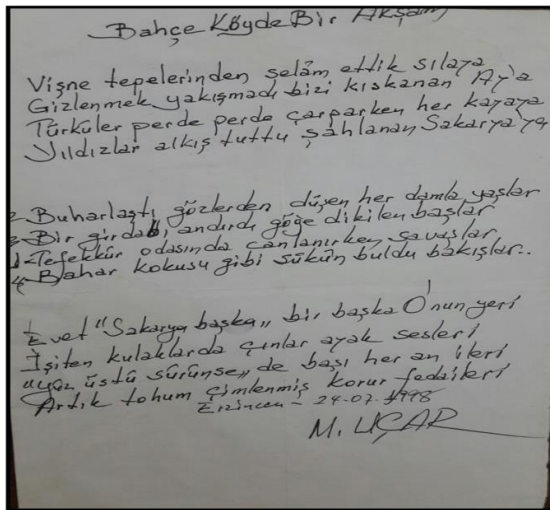 Bahçe Köyde Bir Akşam
Vişne tepelerinden selâm ettik sılaya
Gizlenmek yakışmadı bizi kıskanan Ay'a
Türküler perde perde çarparken her kayaya
Yıldızlar alkış tuttu şahlanan Sakarya'ya
2- Buharlaştı gözlerden düşen her damla yaşlar
3- Bir girdabı andırdı göğe dikilen başlar
1- Tefekkür odasında canlanırken savaşlar
4- Bahar kokusu gibi sükûn buldu bakışlar..
Evet "Sakarya başka" bir başka O'nun yeri
İşiten kulaklarda çınlar ayak sesleri
"yüz üstü sürünse" de başı her an ileri
Artık tohum çimlenmiş korur fedaileri
Erzincan - 24-07-1998
M. UÇAR